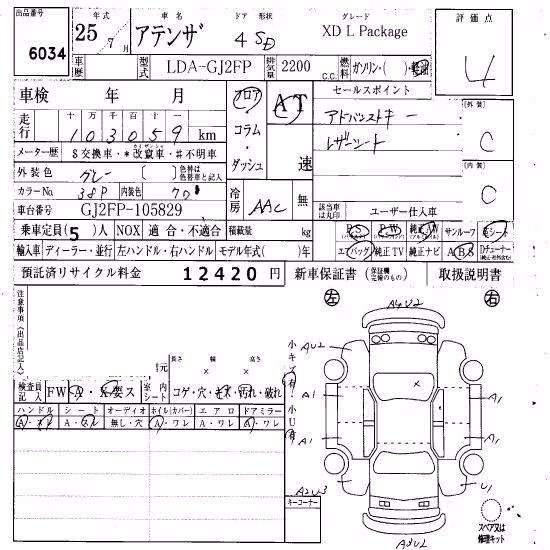 出品番号 年式 車名 ドア 形状 グレード 評価点
6034 25年 7月 アテンザ 4 SD XD L Package 4
車歴 型式 LDA-GJ2FP 排気量 2200 c.c. 燃料 ガソリン・( )軽油
車検 年 月 フロア AT セールスポイント
走行 十 万 千 百 十 一 コラム アドバンストキー 【外装】
103059 km レザーシート C
メーター歴 $交換車・*改竄車・#不明車 ダッシュ 速
外装色 グレー 色替は色替車と記入 【内装】
カラーNo. 38P 内装色 冷房 AAC 無 C
車台番号 GJ2FP-105829 該当車は丸印 ユーザー仕入車
乗車定員(5)人 NOX 適合・不適合 積載量 kg PS PW 純正AW サンルーフ 革シート
輸入車 ディーラー・並行 左ハンドル・右ハンドル モデル年式( )年 エアバッグ 純正TV 純正ナビ ABS Dチューナー
預託済リサイクル料金 12420 円 新車保証書 (保証継承完備のもの) 取扱説明書
注意事項(出品店記入) 左 右
A4U2
小キズ有・小U有
AU2
A1 A1
長さ 幅 高さ
荷寸 × ×
検査員記入 FW A・X・要ス 室内シート コゲ・穴・キズ・汚れ・破れ
ハンドル シート オーディオ ホイル(カバー) エアロ ドアミラー
A・スレ A・スレ 無し・穴 A・ワレ A・ワレ A・ワレ
A1 A1
U1
A2U3
キーコーナー
スペア又は修理キット
A3U2